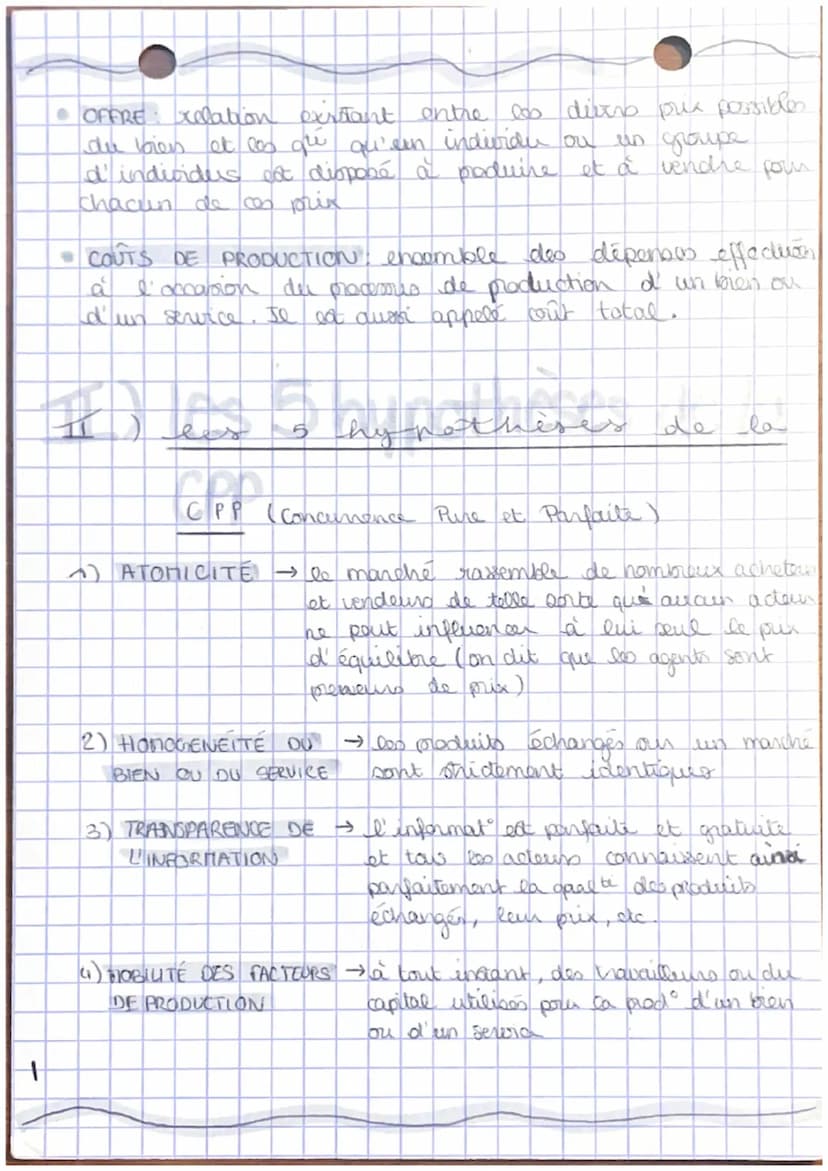 • OFFRE : relation existant entre les divers prix possibles
du bien et les qté qu'un individu ou un groupe
d'individus est disposé à produire et à vendre pour
chacun de ces prix
• COÛTS DE PRODUCTION : ensemble des dépenses effectués
à l'occasion du processus de production d'un bien ou
d'un service. Il est aussi appelé coût total.
II) les 5 hypothèses de la
CPP (Concurrence Pure et Parfaite)
1) ATOMICITÉ → le marché rassemble de nombreux acheteurs
et vendeurs de telle sorte que aucun acteur
ne peut influencer à lui seul le prix
d'équilibre (on dit que les agents sont
preneurs de prix)
2) HOMOGENEÏTÉ DU → les produits échangés sur un marché
BIEN OU DU SERVICE sont strictement identiques
3) TRANSPARENCE DE → l'informat° est parfaite et gratuite
L'INFORMATION et tous les acteurs connaissent ainsi
parfaitement la qualité des produits
échangés, leur prix, etc.
4) MOBILITÉ DES FACTEURS → à tout instant, des travailleurs ou du
DE PRODUCTION capital utilisés pour la prod° d'un bien
ou d'un service
1